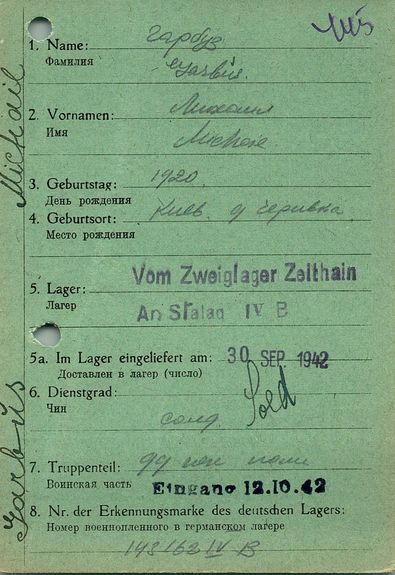 1. Name: Гарбуз
Фамилия Garbús
2. Vornamen: Михаил
Имя Michail
3. Geburtstag: 1920.
День рождения
4. Geburtsort: Киев. д
Место рождения
5. Lager: Vom Zweiglager Zeithain
Лагер An Stalag IV B
5a. Im Lager eingeliefert am: 30 SEP 1942
Доставлен в лагер (число)
6. Dienstgrad: Sold
Чин солд.
7. Truppenteil:
Воинская часть Eingang 12.10.42
8. Nr. der Erkennungsmarke des deutschen Lagers:
Номер военнопленного в германском лагере
148163 IV B
Garbús Michail